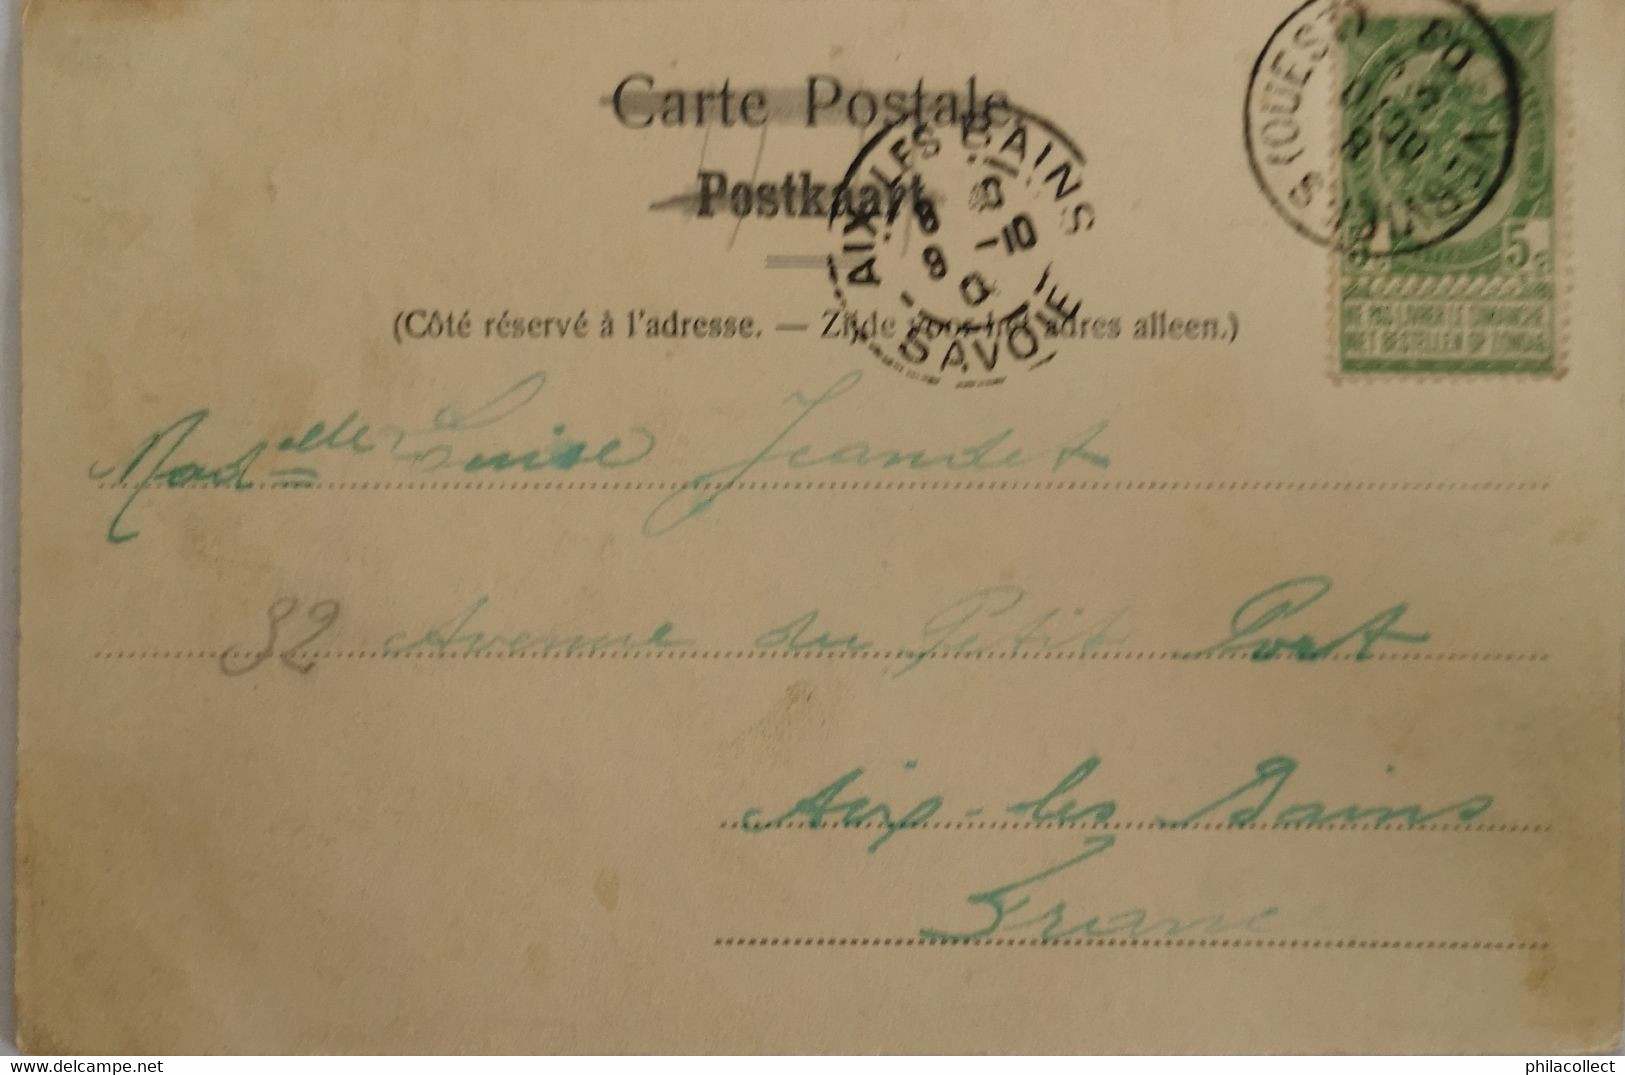 Carte Postale
Postkaart
(Côté réservé à l'adresse. — Zijde voor het adres alleen.)
AIX-LES-BAINS
SAVOIE
VERVIERS (OUEST)
5c 5c
NE PAS LIVRER LE DIMANCHE
NIET BESTELLEN OP ZONDAG
Madelle Louise Jeandet
32 Avenue du Petit Port
Aix-les Bains
France
philacollect